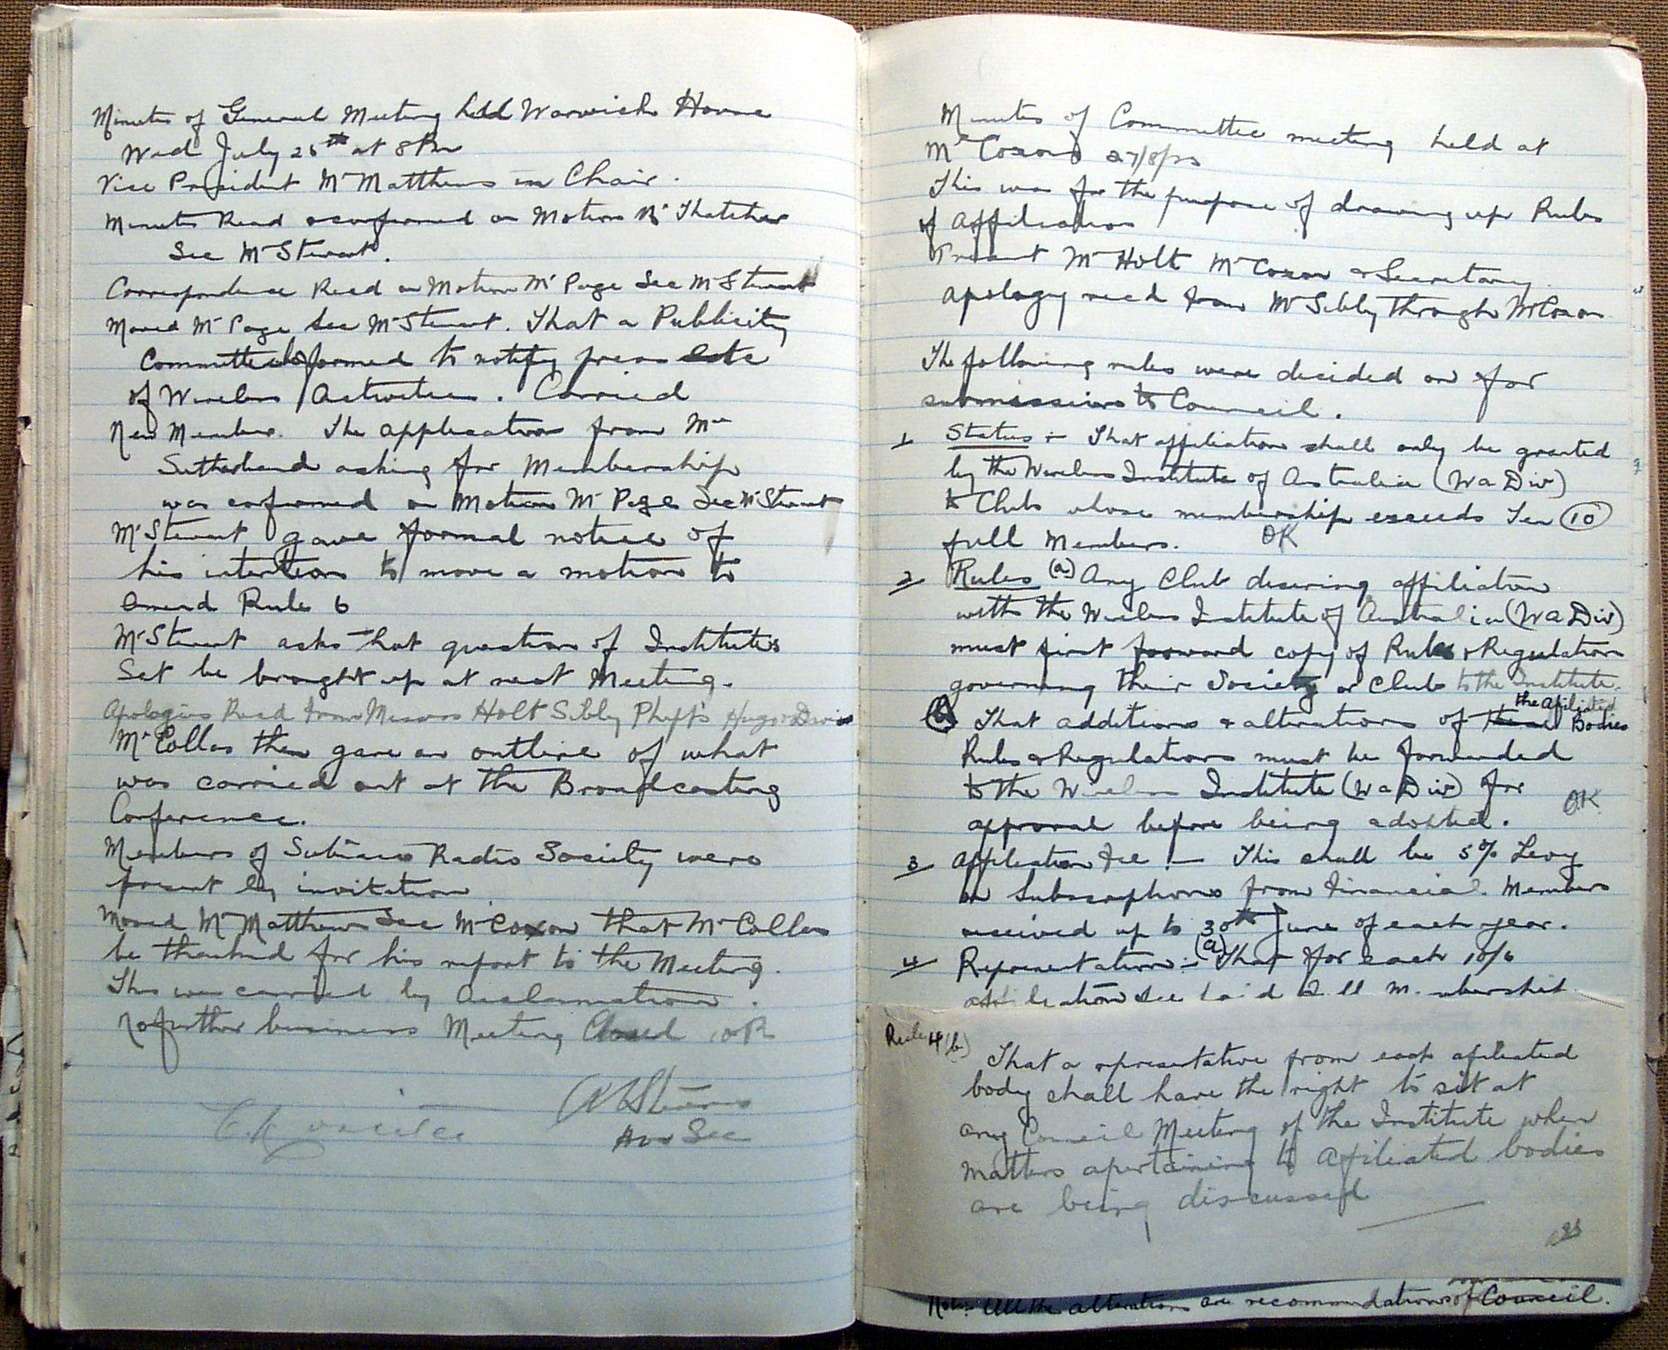 Minutes of General Meeting held Warwick House
Wed July 25th at 8 Pm
Vice President Mr Matthews in Chair.
Minutes Read & confirmed on Motion Mr Thatcher
Sec Mr Stewart.
Correspondence Read on Motion Mr Page Sec Mr Stewart
Moved Mr Page Sec Mr Stewart. That a Publicity
Committee be formed to notify press
of Wireless Activities. Carried
New Members. The application from Mr
Sutherland asking for Membership
was confirmed on Motion Mr Page Sec Mr Stewart
Mr Stewart gave formal notice of
his intention to move a motion to
amend Rule 6
Mr Stewart asks that question of Institutes
Set be brought up at next Meeting.
Apologies Read from Messrs Holt Sibly Phipps Hugo & Davis
Mr Collas then gave an outline of what
was carried out at the Broadcasting
Conference.
Members of Subiaco Radio Society were
present by invitation
Moved Mr Matthews Sec Mr Coxon that Mr Collas
be thanked for his report to the Meeting.
This was carried by Acclamation.
No further business Meeting Closed
Hon Sec
Minutes of Committee meeting held at
Mr Coxons
This was for the purpose of drawing up Rules
of Affiliation
Present Mr Holt Mr Coxon & Secretary.
Apology recd from Mr Sibly through Mr Coxon
The following rules were decided on for
submission to Council.
1 Status :- That affiliation shall only be granted
by the Wireless Institute of Australia (Wa Div)
to Clubs whose membership exceeds Ten (10)
full Members. OK
2 Rules (a) Any Club desiring affiliation
with the Wireless Institute of Australia (Wa Div)
must first forward copy of Rules & Regulation
governing their Society or Club to the Institute.
the Afiliated
(b) That additions & alterations of Bodies
Rules & Regulations must be forwarded
to the Wireless Institute (Wa Div) for
approval before being adopted. OK
3 Affiliation Fee :- This shall be 5% Levy
on Subscriptions from Financial Members
received up to 30th June of each year.
4 Representation :- (a) That for each 10/6
affiliation fee paid full membership
Rule 4 (b) That a representative from each afiliated
body shall have the right to sit at
any Council Meeting of the Institute when
matters apertaining to Afiliated bodies
are being discussed
Note:- All the alterations are recommendations of Council.